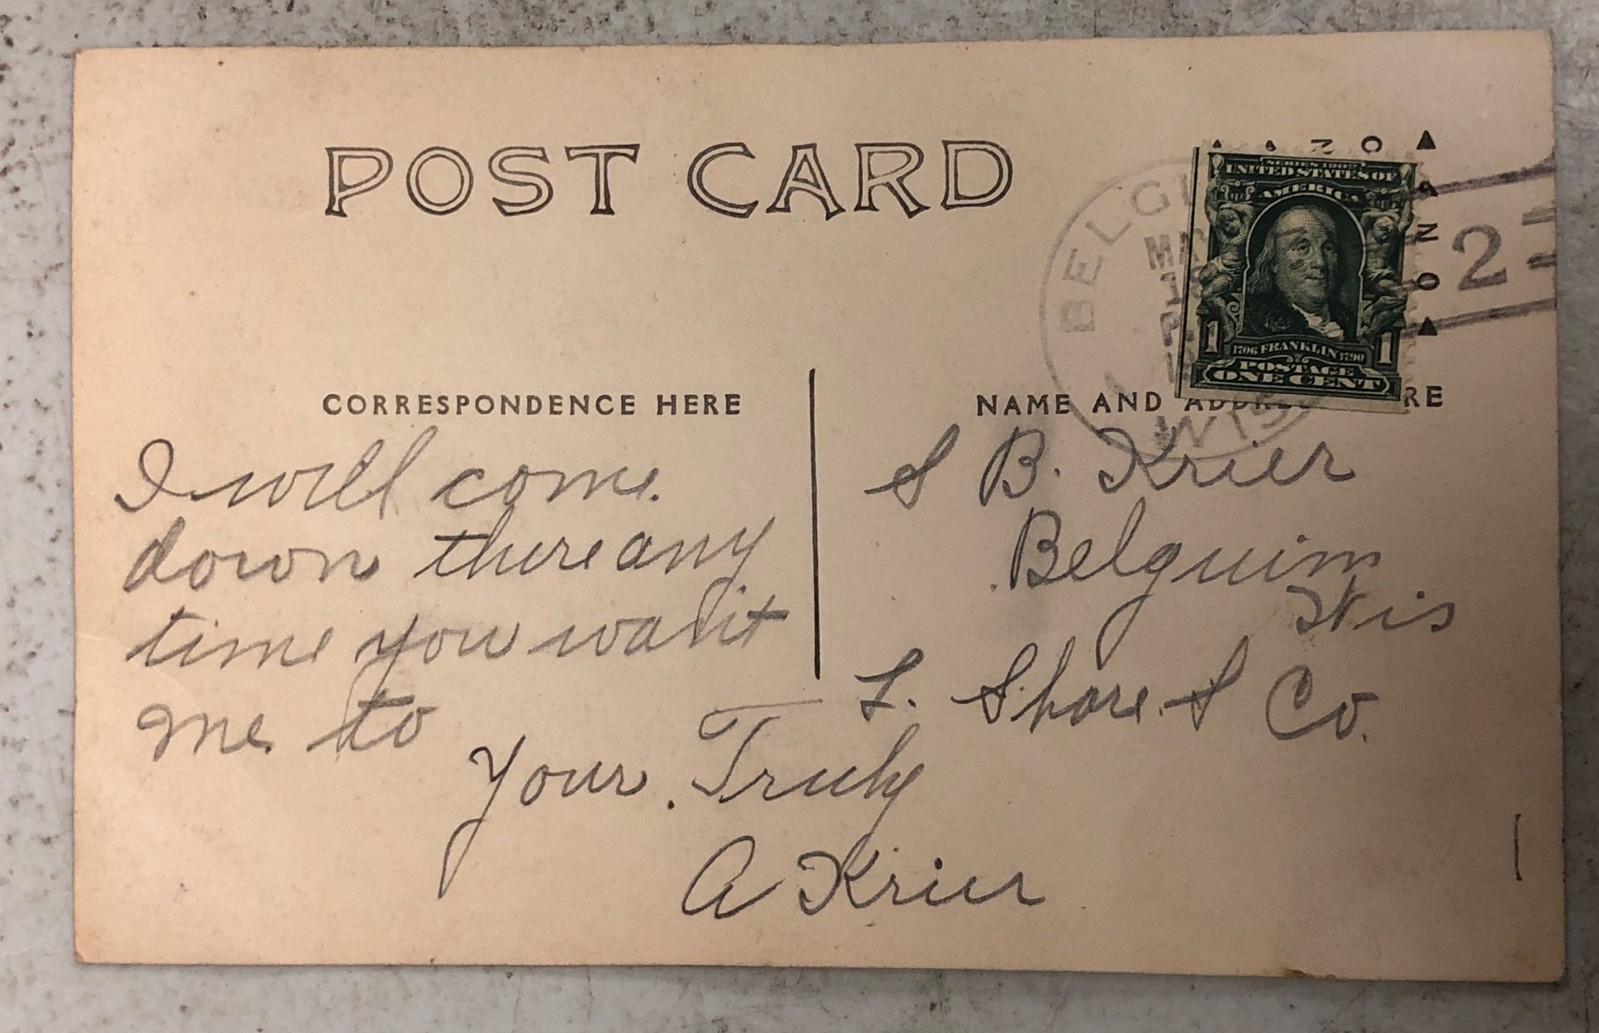 POST CARD
BELGI
WIS
SERIES 1902
UNITED STATES OF
AMERICA
1 1
1706 FRANKLIN 1790
POSTAGE
ONE CENT
A Z O
A Z O
2
CORRESPONDENCE HERE
I will come
down there any
time you want
me to
Your. Truly
A Krier
NAME AND ADDRE RE
S B. Krier
Belguim
Wis
L. Shore. S Co.